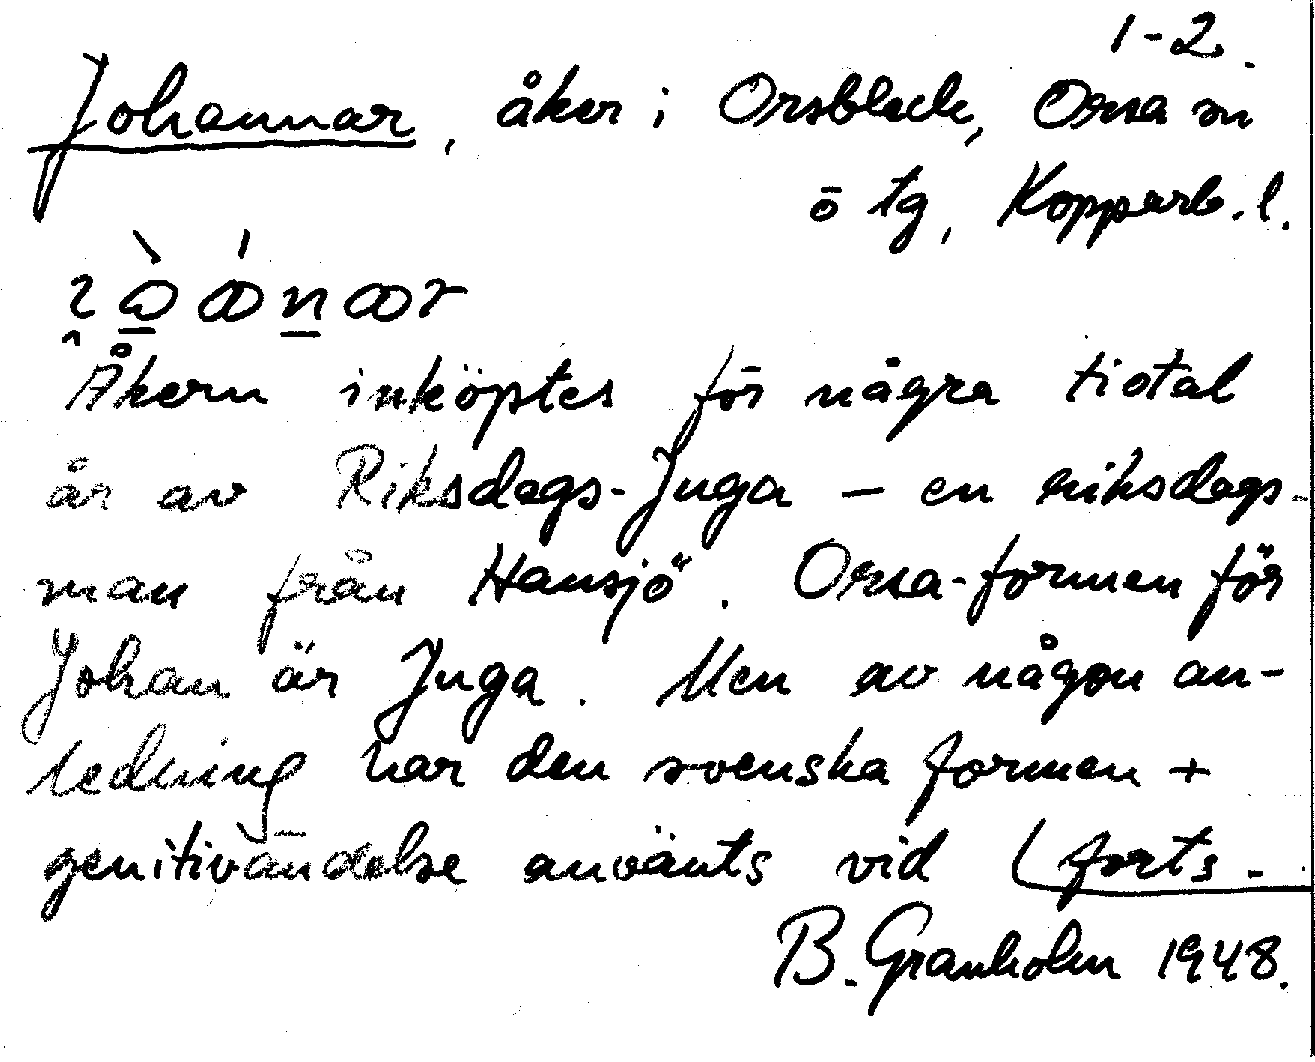 1-2.
Johannar, åker i Orsbleck, Orsa sn
ö tg, Kopparb. l.
Åkern inköptes för några tiotal
år av Riksdags-Juga – en riksdags-
man från Hansjö. Orsa-formen för
Johan är Juga. Men av någon an-
ledning har den svenska formen +
genitivändelse använts vid (forts.
B. Granholm 1948.